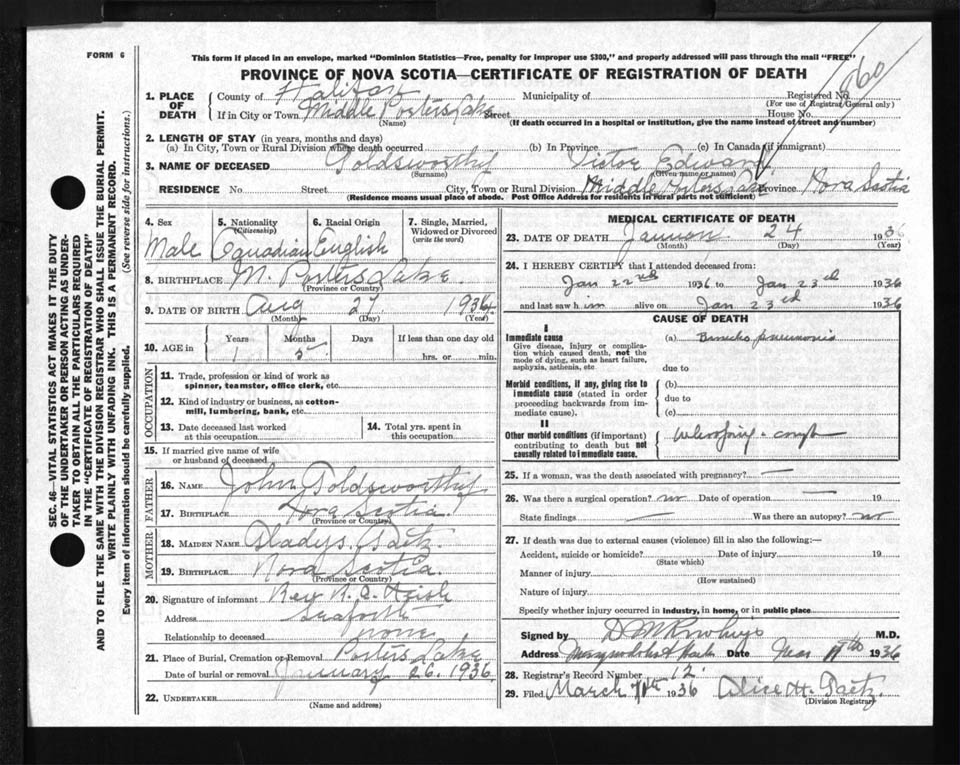 FORM 6
This form if placed in an envelope, marked "Dominion Statistics—Free, penalty for improper use $300," and properly addressed will pass through the mail "FREE"
PROVINCE OF NOVA SCOTIA—CERTIFICATE OF REGISTRATION OF DEATH
1. PLACE OF DEATH County of Halifax Municipality of Registered No. 060
(For use of Registrar General only)
If in City or Town Middle Porters Lake Street House No.
(Name) (If death occurred in a hospital or institution, give the name instead of street and number)
2. LENGTH OF STAY (in years, months and days)
(a) In City, Town or Rural Division where death occurred (b) In Province (c) In Canada (if immigrant)
3. NAME OF DECEASED Goldsworthy Victor Edward
(Surname) (Given name or names)
RESIDENCE No. Street City, Town or Rural Division Middle Porters Lake Province Nova Scotia
(Residence means usual place of abode. Post Office Address for residents in rural parts not sufficient)
SEC. 46—VITAL STATISTICS ACT MAKES IT THE DUTY
OF THE UNDERTAKER OR PERSON ACTING AS UNDER-
TAKER TO OBTAIN ALL THE PARTICULARS REQUIRED
IN THE "CERTIFICATE OF REGISTRATION OF DEATH"
AND TO FILE THE SAME WITH THE DIVISION REGISTRAR WHO SHALL ISSUE THE BURIAL PERMIT.
WRITE PLAINLY WITH UNFADING INK. THIS IS A PERMANENT RECORD.
Every item of information should be carefully supplied. (See reverse side for instructions.)
4. Sex 5. Nationality (Citizenship) 6. Racial Origin 7. Single, Married, Widowed or Divorced (write the word)
Male Canadian English
8. BIRTHPLACE M. Porters Lake
(Province or Country)
9. DATE OF BIRTH Aug 27 1934
(Month) (Day) (Year)
10. AGE in Years Months Days If less than one day old
1 5 hrs. or min.
OCCUPATION
11. Trade, profession or kind of work as
spinner, teamster, office clerk, etc.
12. Kind of industry or business, as cotton-
mill, lumbering, bank, etc.
13. Date deceased last worked at this occupation
14. Total yrs. spent in this occupation
15. If married give name of wife
or husband of deceased
FATHER
16. NAME John Goldsworthy
17. BIRTHPLACE Nova Scotia
(Province or Country)
MOTHER
18. MAIDEN NAME Gladys Gaetz
19. BIRTHPLACE Nova Scotia
(Province or Country)
20. Signature of informant Rev
Address Seaforth
Relationship to deceased none
21. Place of Burial, Cremation or Removal Porters Lake
Date of burial or removal January 26. 1936
22. UNDERTAKER
(Name and address)
MEDICAL CERTIFICATE OF DEATH
23. DATE OF DEATH 24 1936
(Month) (Day) (Year)
24. I HEREBY CERTIFY that I attended deceased from:
Jan 22nd 1936 to Jan 23rd 1936
and last saw him alive on Jan 23rd 1936
CAUSE OF DEATH
I
Immediate cause (a) Broncho pneumonia
Give disease, injury or complica-
tion which caused death, not the
mode of dying, such as heart failure,
asphyxia, asthenia, etc due to
Morbid conditions, if any, giving rise to (b)
immediate cause (stated in order due to
proceeding backwards from im-
mediate cause). (c)
II
Other morbid conditions (if important) Whooping-cough
contributing to death but not
causally related to immediate cause.
25. If a woman, was the death associated with pregnancy? —
26. Was there a surgical operation? no Date of operation — 19
State findings — Was there an autopsy? no
27. If death was due to external causes (violence) fill in also the following:—
Accident, suicide or homicide? Date of injury 19
(State which)
Manner of injury
(How sustained)
Nature of injury
Specify whether injury occurred in industry, in home, or in public place
Signed by M.D.
Address Date Mar 11th 1936
28. Registrar's Record Number 12.
29. Filed March 1936 Alice H. Gaetz
(Division Registrar)